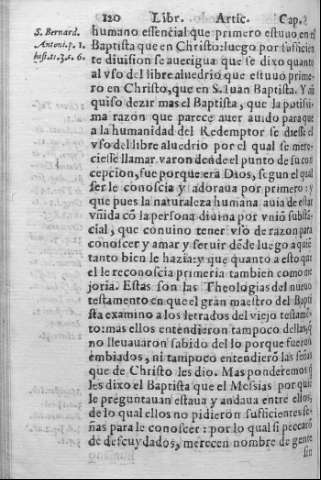 120 Libr. Artic. Cap.
S. Bernard.
Antoni.p. 1.
hist.
humano essencial que primero estuuo en el
Baptista que en Christo: luego por suficien
te diuision se aueriguа que se dixo quanto
al vso del libre aluedrio que estuuo prime-
ro en Christo, que en S. Iuan Baptista. Y aũ
quiso dezir mas el Baptista, que la potissi-
ma razon que parece auer auido para que
a la humanidad del Redemptor se diesse el
vso del libre aluedrio por el qual se mere-
ciesse llamar varon dẽsde el punto de su con
cepcion, fue porque era Dios, segun el qual
ser le conoscia y adoraua por primero: y
que pues la naturaleza humana auia de estar
vnida cõ la persona diuina por vniõ substã-
cial, que conuino tener vso de razon para
conoscer y amar y seruir dẽsde luego a quiẽ
tanto bien le hazia: y que quanto a esto que
el le reconoscia primeria tambien como me
joria. Estas son las Theologias del nueuo
testamento en que el gran maestro del Bapti
sta examino a los letrados del viejo testamẽ-
to: mas ellos entendieron tampoco dellas, q̃
no lleuauaron sabido del lo porque fueron
embiados, ni tampoco entendierõ las señas
que de Christo les dio. Mas ponderemos q̃
les dixo el Baptista que el Messias por quiẽ
le preguntauan estaua y andaua entre ellos,
de lo qual ellos no pidieron suficientes se-
ñas para le conoscer: por lo qual si peccarõ
de descuydados, merecen nombre de gente
sin